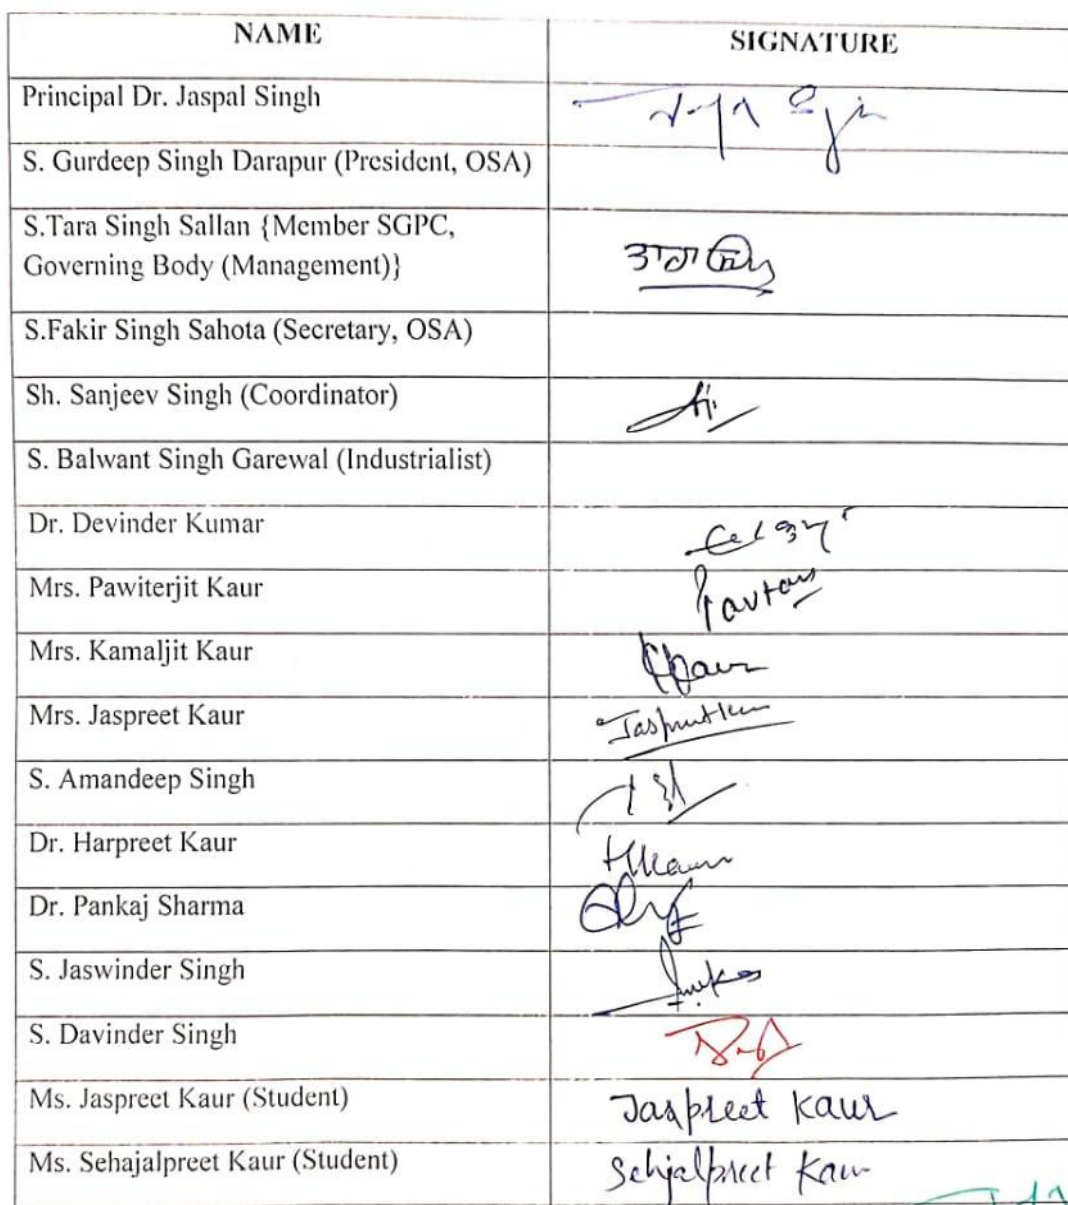 NAME
SIGNATURE
Principal Dr. Jaspal Singh
S. Gurdeep Singh Darapur (President, OSA)
S.Tara Singh Sallan {Member SGPC,
Governing Body (Management)}
S.Fakir Singh Sahota (Secretary, OSA)
Sh. Sanjeev Singh (Coordinator)
S. Balwant Singh Garewal (Industrialist)
Dr. Devinder Kumar
Mrs. Pawiterjit Kaur
Mrs. Kamaljit Kaur
Kaur
Mrs. Jaspreet Kaur
S. Amandeep Singh
Dr. Harpreet Kaur
Dr. Pankaj Sharma
S. Jaswinder Singh
S. Davinder Singh
Ms. Jaspreet Kaur (Student)
Jaspreet Kaur
Ms. Sehajalpreet Kaur (Student)
Sehjalpreet Kaur